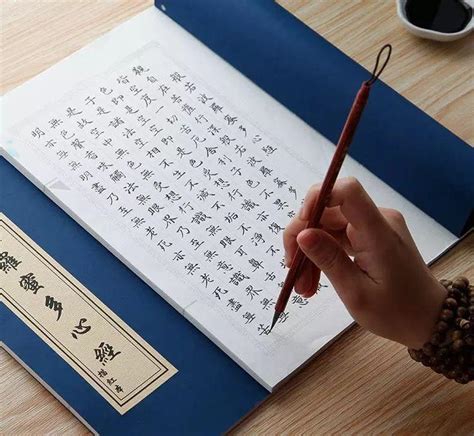 觀自在菩薩行深般若波羅蜜多時照見五蘊
皆空度一切苦厄舍利子色不異空空不異色
色即是空空即是色受想行識亦復如是舍利
子是諸法空相不生不滅不垢不淨不增不減
是故空中無色無受想行識無眼耳鼻舌身意
無色聲香味觸法無眼界乃至無意識界無無
明亦無無明盡乃至無老死亦無老死盡無苦
羅蜜多心經
描紅本